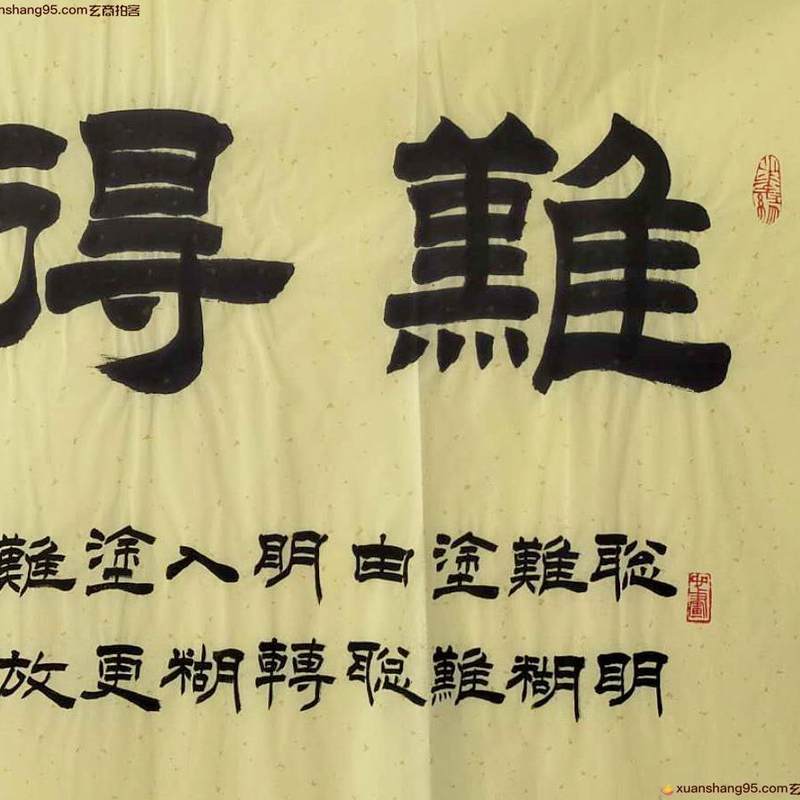 anshang95.com玄商拍客
難得
聰明
難糊
塗難
由聰
明轉
入糊
塗更
難放
xuanshang95.com玄